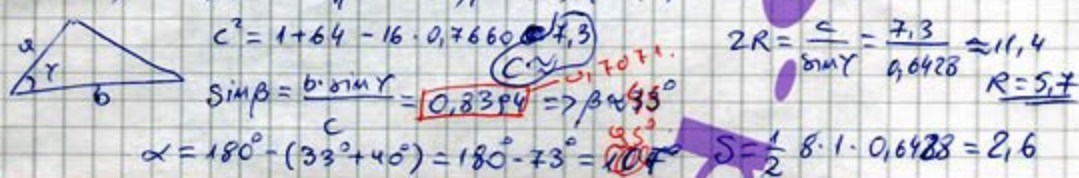 a γ b
c² = 1+64 - 16 · 0,7660 c ≈ 7,3
sinβ = b·sinγ / c = 0,8394 => β ≈ 33°
0,7071.
45°
α = 180° - (33°+40°) = 180° - 73° = 107°
95°
2R = c / sinγ = 7,3 / 0,6428 ≈ 11,4
R = 5,7
S = 1/2 8 · 1 · 0,6428 = 2,6